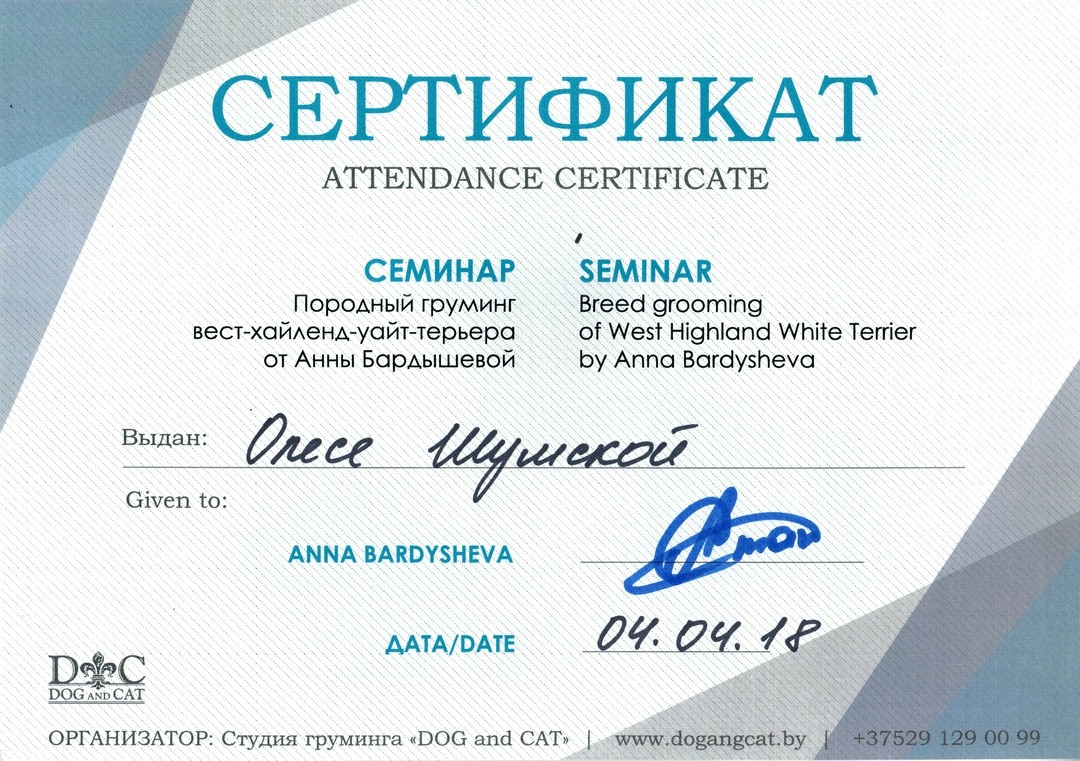 СЕРТИФИКАТ
ATTENDANCE CERTIFICATE
СЕМИНАР
Породный груминг
вест-хайленд-уайт-терьера
от Анны Бардышевой
SEMINAR
Breed grooming
of West Highland White Terrier
by Anna Bardysheva
Выдан: Олесе Шумской
Given to:
ANNA BARDYSHEVA
ДАТА/DATE 04.04.18
D C
DOG AND CAT
ОРГАНИЗАТОР: Студия груминга «DOG and CAT» | www.dogangcat.by | +37529 129 00 99